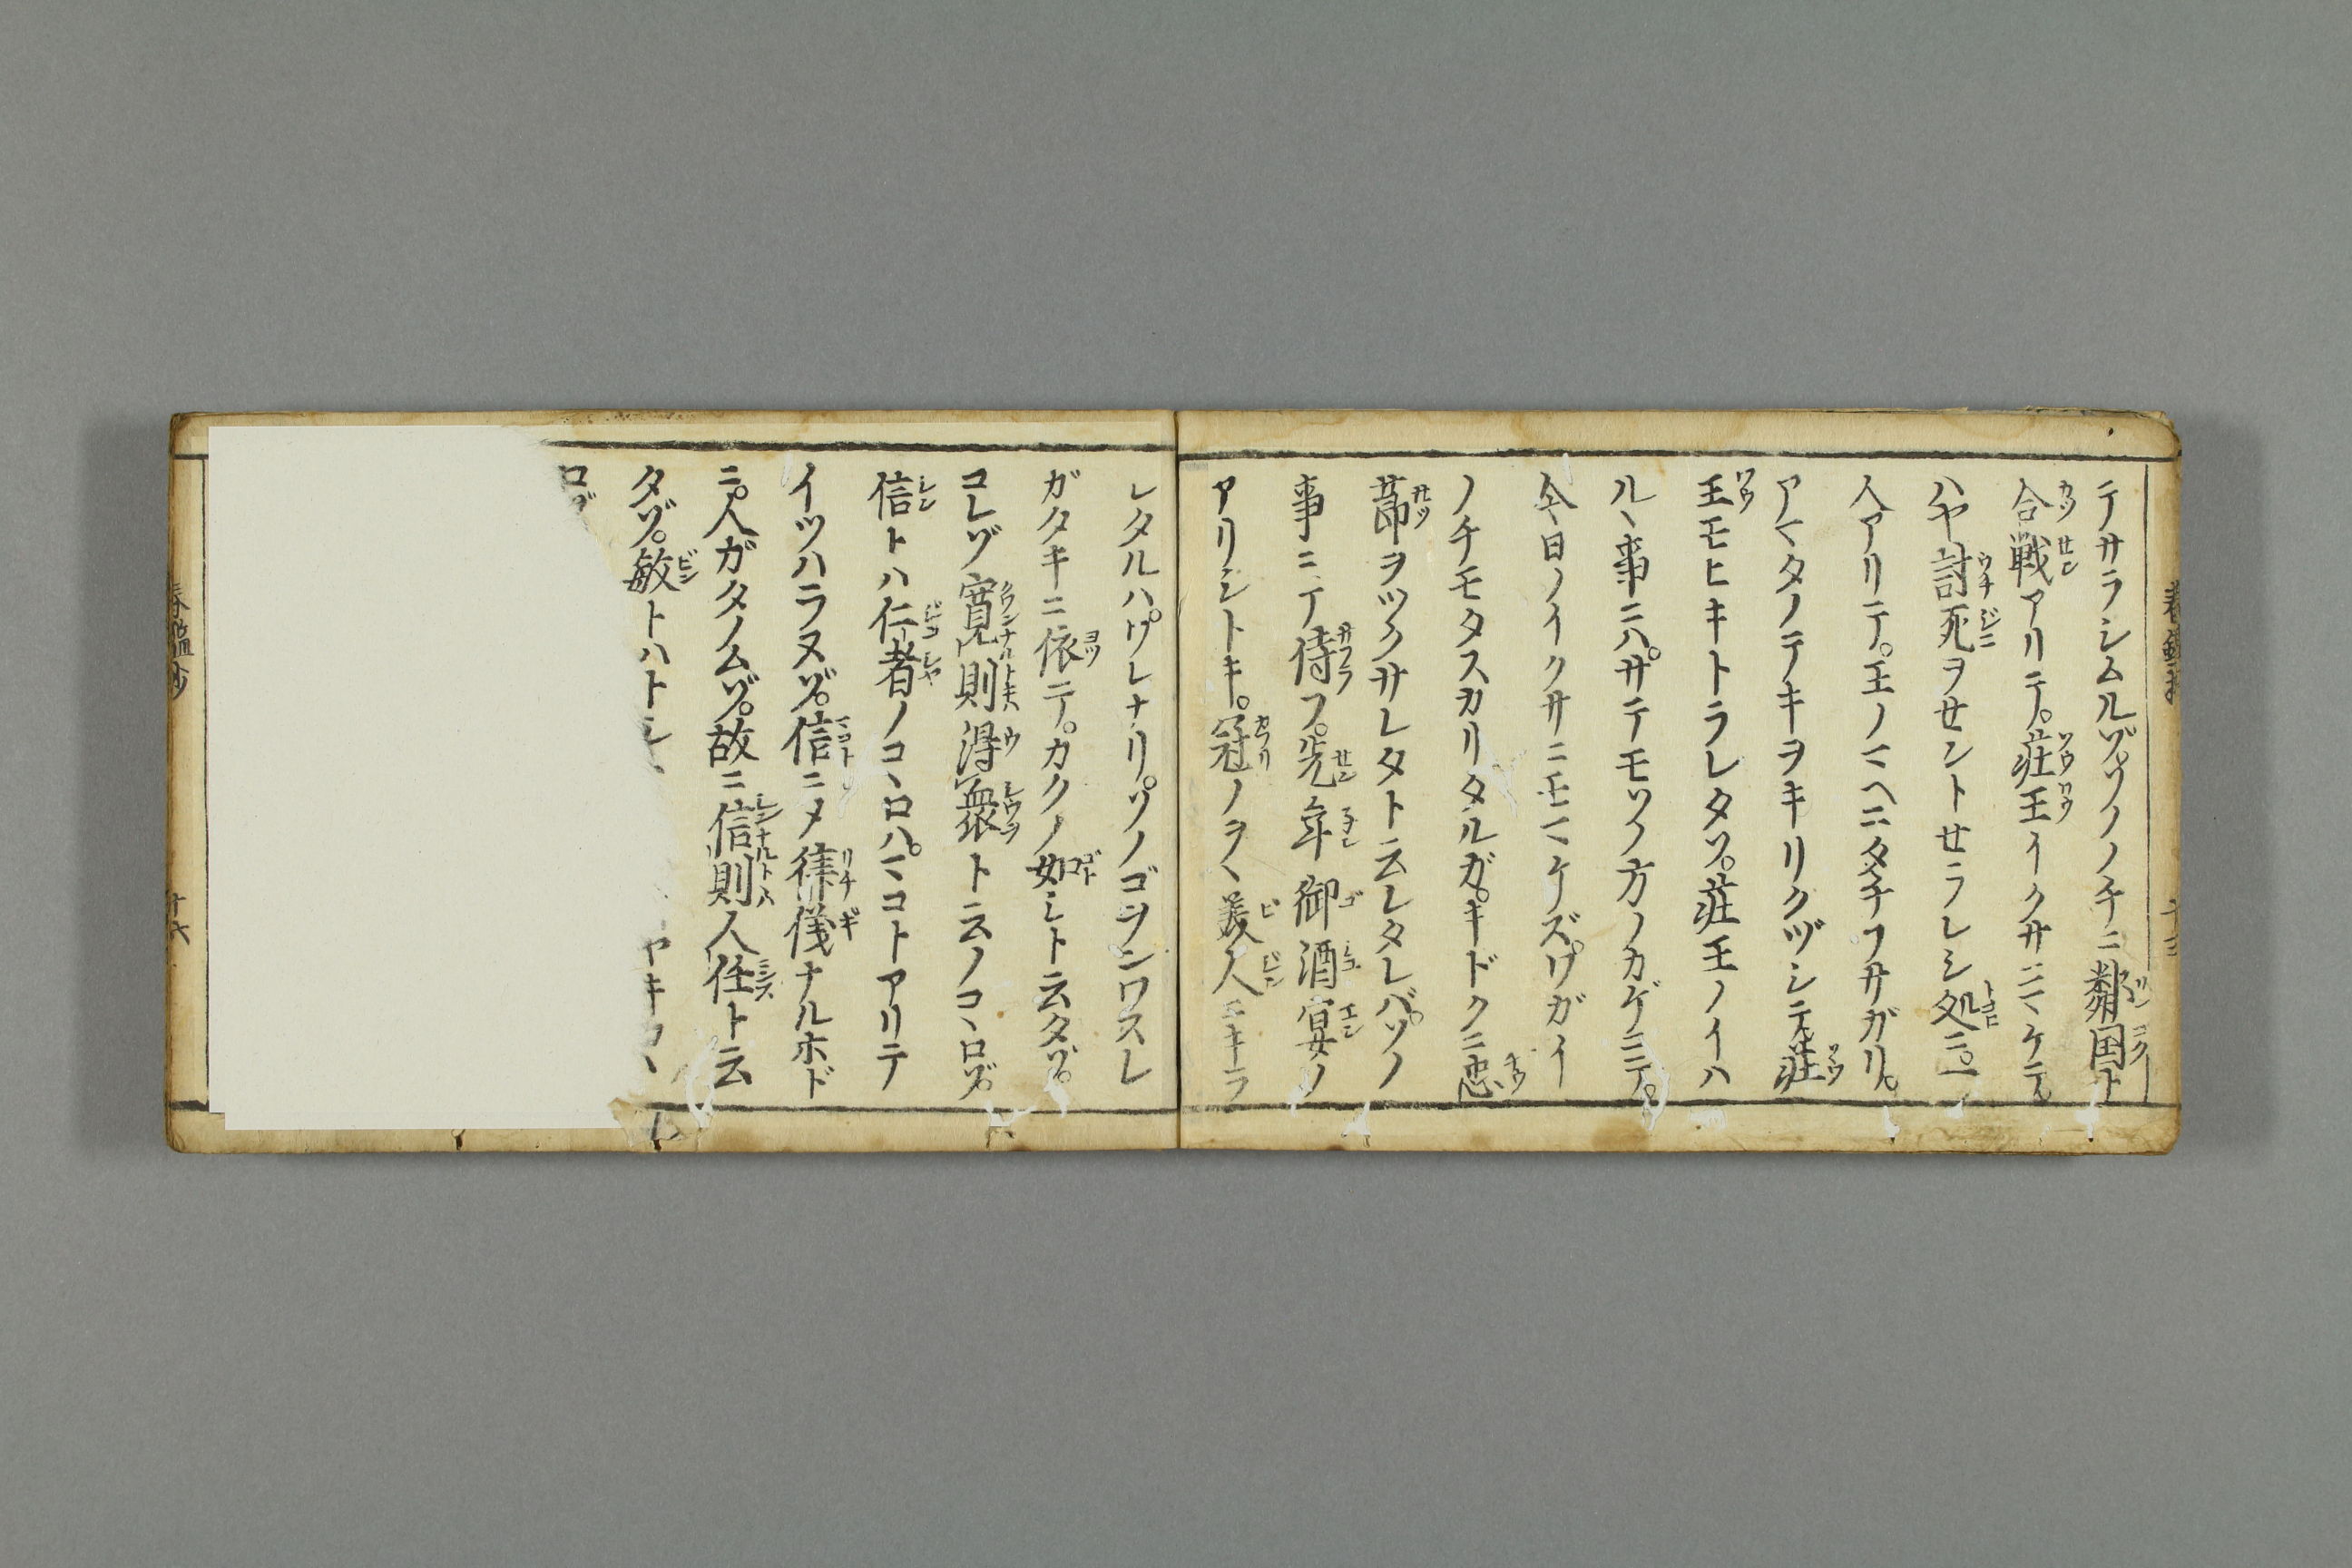 テサラシムルゾ。ソノノチニ鄰国ト
合戦アリテ。荘王イクサニマケテ。
ハヤ討死ヲせントせラレシ処ニ。一
人アリテ。王ノマヘニタチフサガリ。
アマタノテキヲキリクヅシテ。荘
王モヒキトラレタソ。荘王ノイハ
ルヽ事ニハ。サテモソノ方ノカゲニテ。
今日ノイクサニモマケズ。ワガイ
ノチモタスカリタルガ。キドクニ忠
節ヲツクサレタト云レタレバ。ソノ
事ニテ侍フ。先年御酒宴ノ
アリシトキ。冠ノヲヽ美人ニキラ
レタルハ。ワレナリ。ソノゴヲンワスレ
ガタキニ依テ。カクノ如シト云タゾ。
コレゾ寛則得衆ト云ノコヽロゾ。
信トハ仁者ノコヽロハ。マコトアリテ
イツハラヌゾ。信ニメ律儀ナルホド
ニ。人ガタノムゾ。故ニ信則人任ト云
タゾ。敏トハトシ
ヤキコヽ
ロゾ